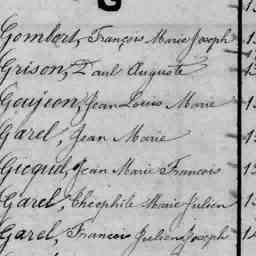 G
Gombert, François Marie Joseph
Grison, Paul Auguste
Goujeon, Jean Louis Marie
Garel, Jean Marie
Gicquel, Jean Marie François
Garel, Théophile Marie Julien
Garel, François Julien Joseph